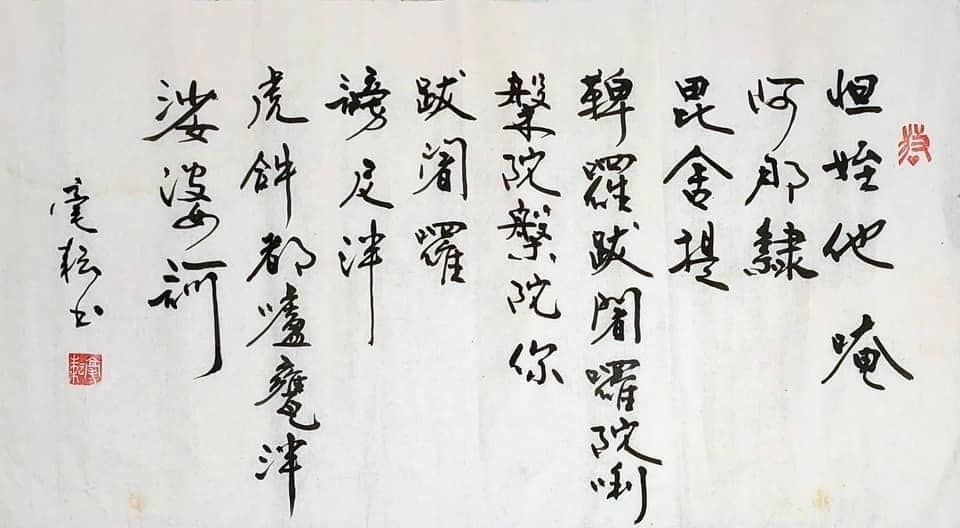 怛姪他 唵
阿那隸
毘舍提
鞞囉跋闍囉陀唎
槃陀槃陀你
跋闍囉
謗尼泮
虎𤙖都嚧甕泮
娑婆訶
毫耘书